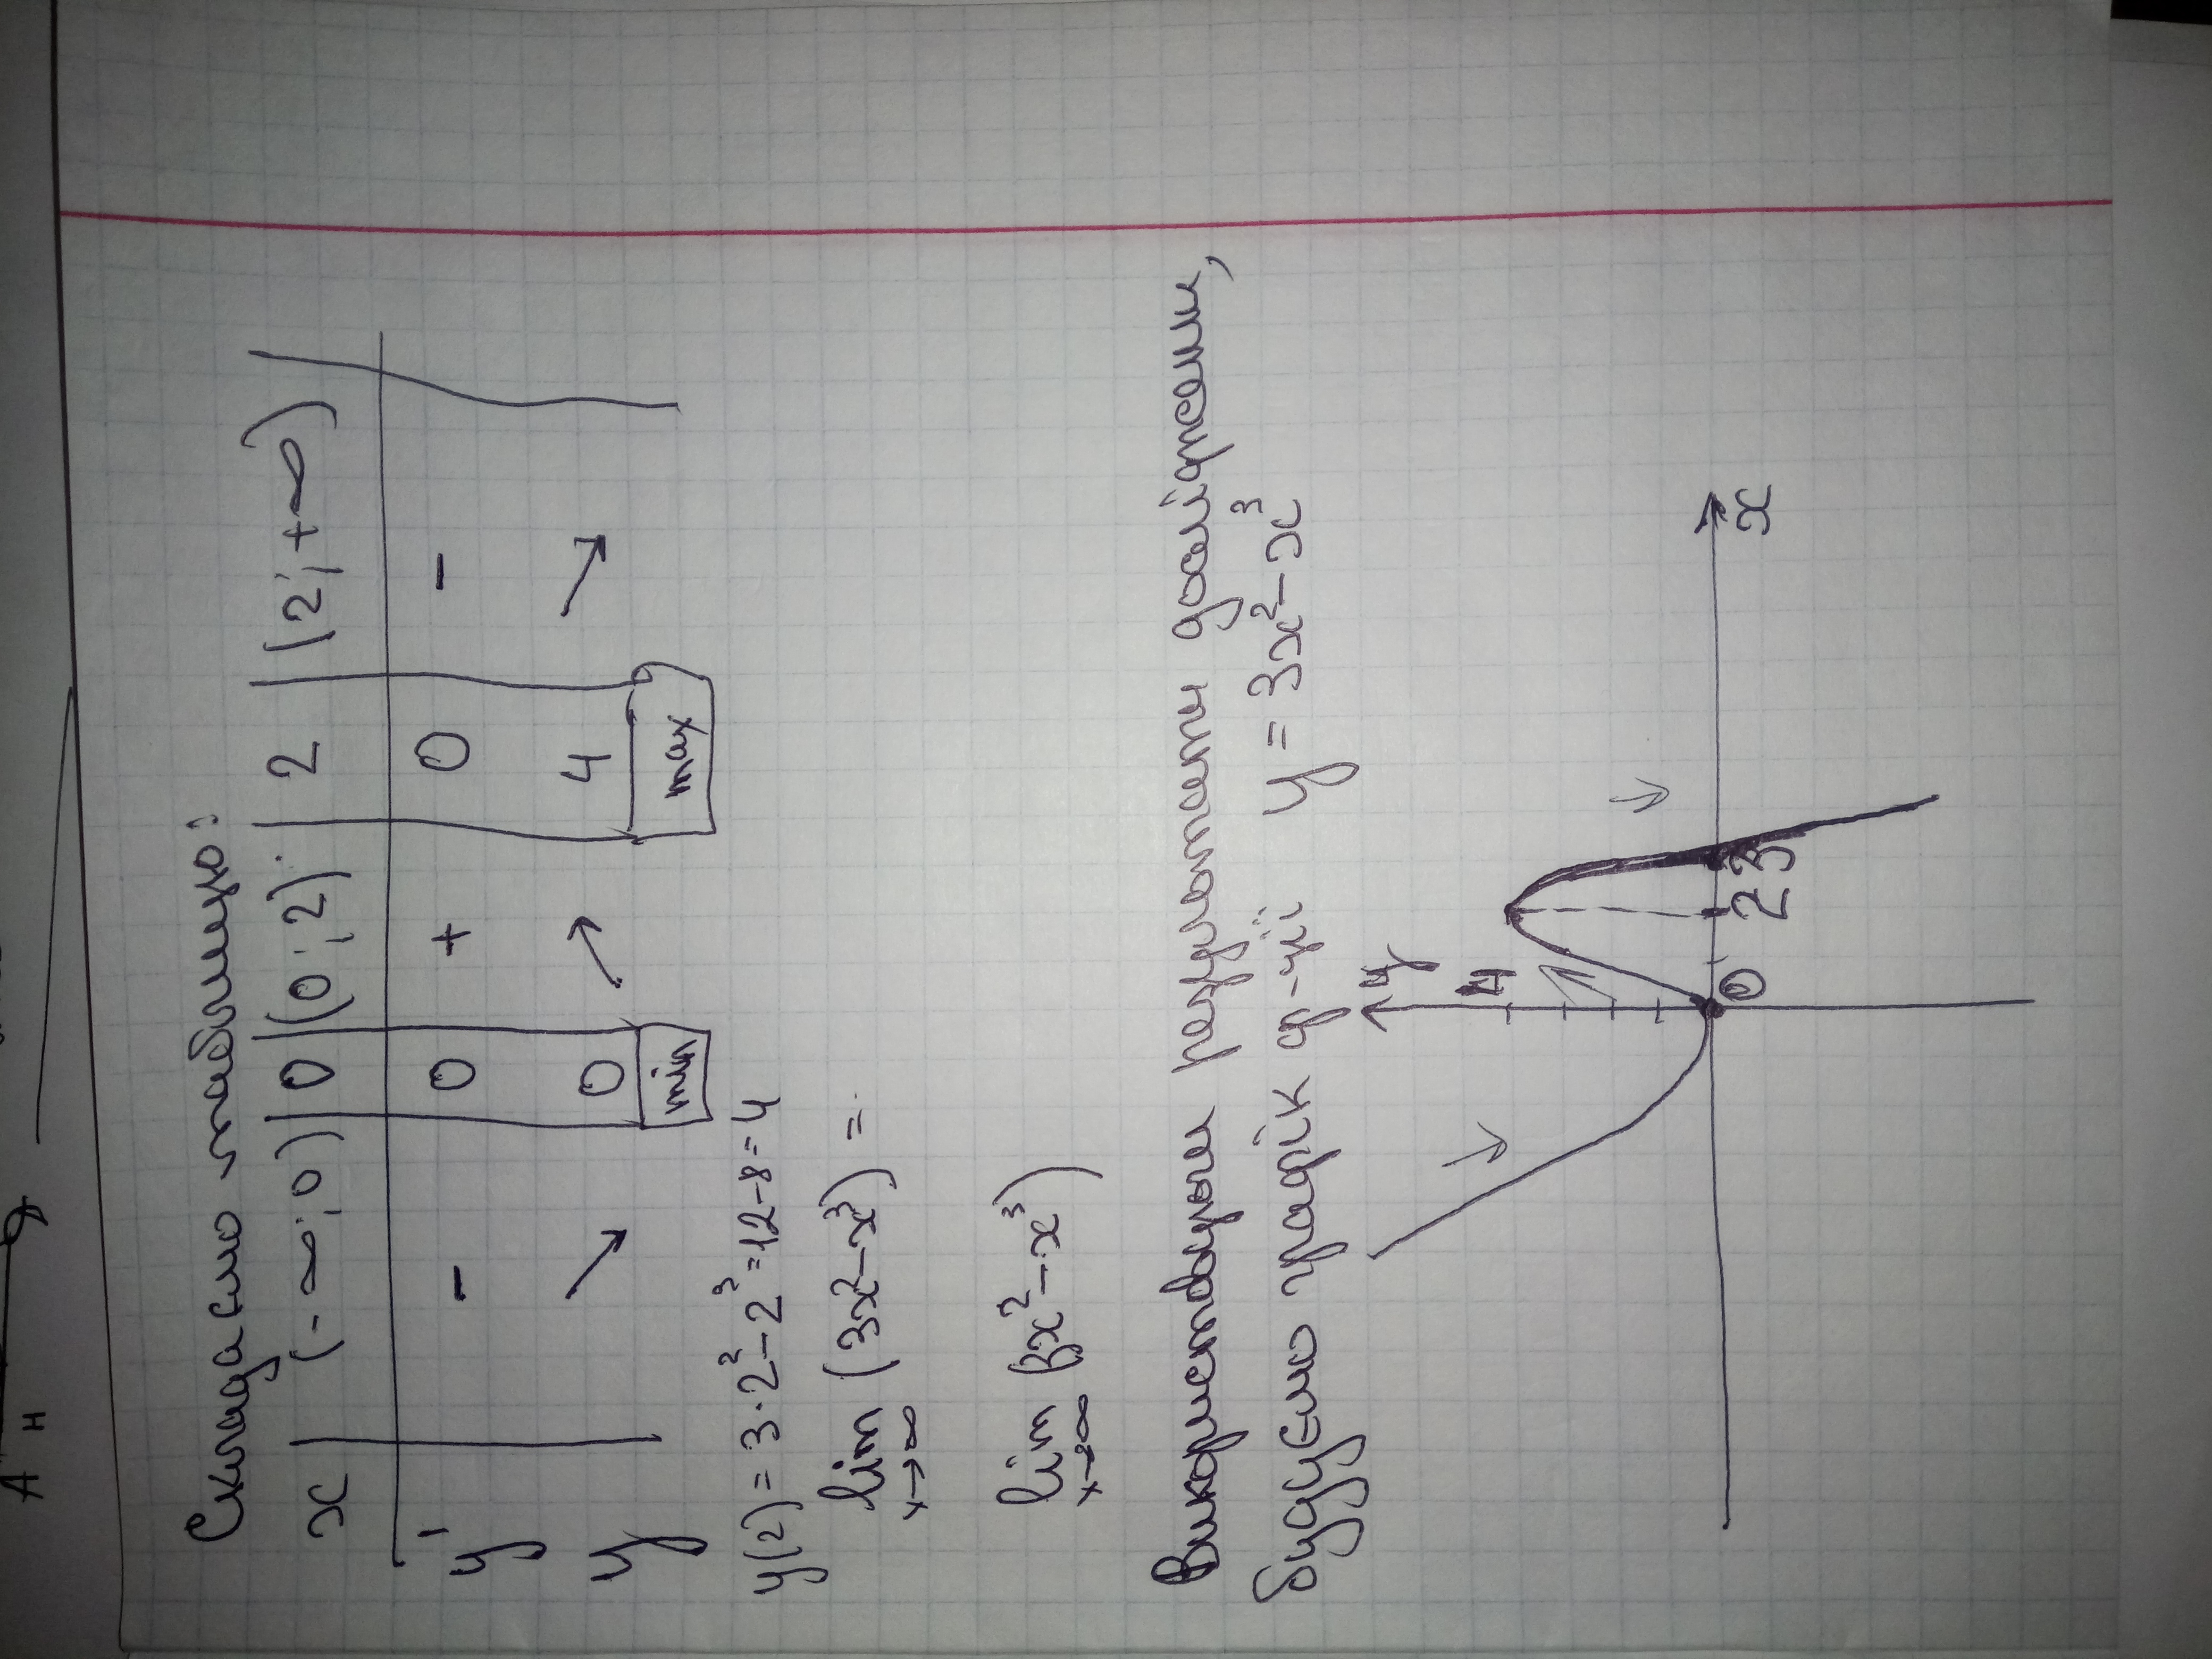 Складаємо таблицю:
x | (-∞; 0) | 0 | (0; 2) | 2 | (2; +∞)
y' - 0 + 0 -
y ↘ 0 ↗ 4 ↘
min max
y(2) = 3·2² - 2³ = 12 - 8 = 4
lim (3x² - x³) =
x→∞
lim (3x² - x³)
x→∞
Використовуючи результати досліджень,
будуємо графік ф-ції y = 3x² - x³
y
4
0 2 3 x
А н